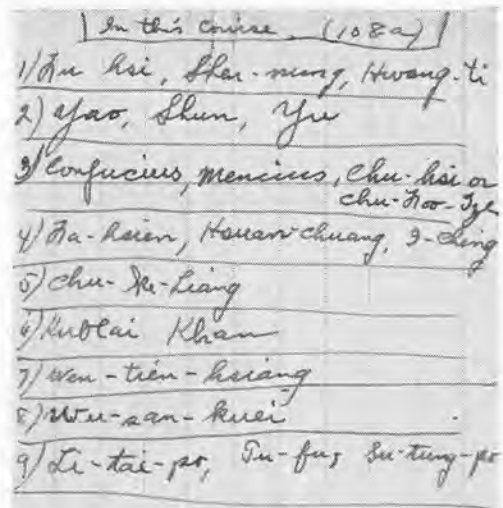 In this course (108a)
1) Fu hsi, Shen-nung, Hwang-ti
2) Yao, Shun, Yu
3) Confucius, Mencius, Chu-hsi or
Chu-Foo-Tze
4) Fa-hsien, Hsuan-chuang, I-Ching
5) Chu-ke-Liang
6) Kublai Khan
7) Wen-tien-hsiang
8) Wu-san-kuei
9) Li-tai-po, Tu-fu, Su-tung-po